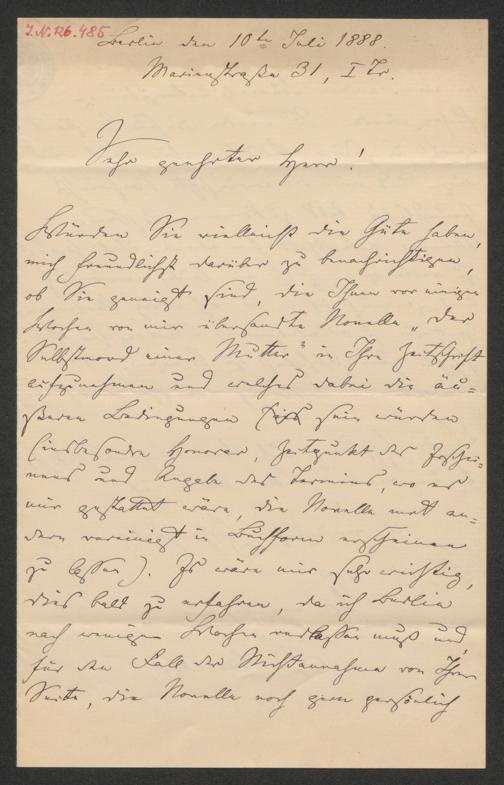 I.N. 126.485
Berlin den 10te Juli 1888.
Marienstraße 31, I Tr.
Sehr geehrter Herr!
Würden Sie vielleicht die Güte haben,
mich freundlichst darüber zu benachrichtigen,
ob Sie geneigt sind, die Ihnen vor einigen
Wochen von mir übersandte Novelle „Der
Selbstmord einer Mutter" in Ihre Zeitschrift
aufzunehmen und welches dabei die äu=
ßeren Bedingungen sein würden
(insbesondre Honorar, Zeitpunkt des Erschei=
nens und Angabe des Termins, wo es
mir gestattet wäre, die Novelle mit an=
dern vereinigt in Buchform erscheinen
zu lassen). Es wäre mir sehr wichtig,
dies bald zu erfahren, da ich Berlin
nach wenigen Wochen verlassen muß und,
für den Fall der Nichtannahme von Ihrer
Seite, die Novelle noch gern persönlich